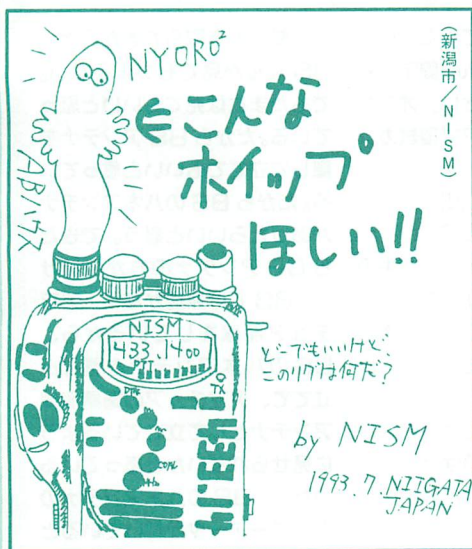 (新潟市/NISM)
NYORO²
←こんな
ホイップ
ほしい!!
ABハウス
NISM
433.1400
PTT
TX
433.14
どーでもいいけど、
このリグは何だ?
by NISM
1993.7. NIIGATA
JAPAN